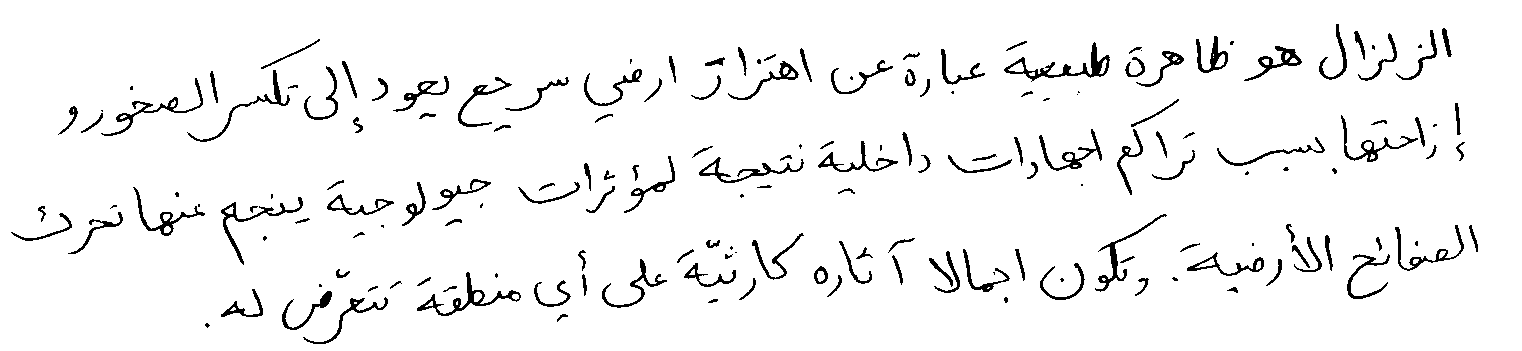 الزلزال هو ظاهرة طبيعية عبارة عن اهتزاز ارضي سريع يعود إلى تكسر الصخور و
إزاحتها بسبب تراكم اجهادات داخلية نتيجة لمؤثرات جيولوجية ينجم عنها تحرك
الصفائح الأرضية. وتكون اجمالا آثاره كارثيّة على أي منطقة تتعرّض له.